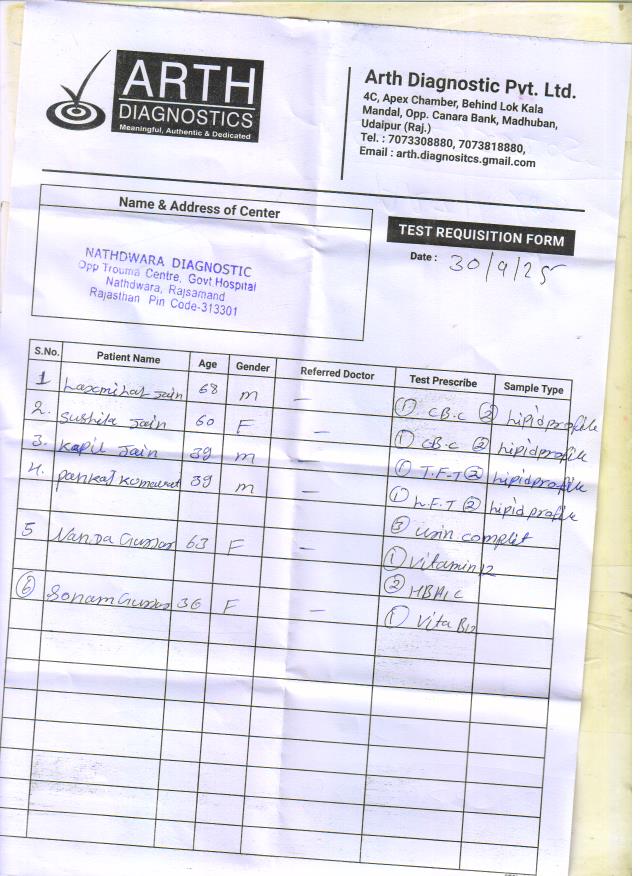 ARTH
DIAGNOSTICS
Meaningful, Authentic & Dedicated
Arth Diagnostic Pvt. Ltd.
4C, Apex Chamber, Behind Lok Kala
Mandal, Opp. Canara Bank, Madhuban,
Udaipur (Raj.)
Tel. : 7073308880, 7073818880,
Email : arth.diagnositcs.gmail.com
Name & Address of Center
NATHDWARA DIAGNOSTIC
Opp Trouma Centre, Govt Hospital
Nathdwara, Rajsamand
Rajasthan Pin Code-313301
TEST REQUISITION FORM
Date : 30/9/25
S.No. Patient Name Age Gender Referred Doctor Test Prescribe Sample Type
1 Laxmilal Jain 68 m — ① CBC ② lipid profile
2. Sushila Jain 60 F — ① CBC ② lipid profile
3. Kapil Jain 39 m — ① T.F.T ② lipid profile
4. Pankaj Kumawat 39 m — ① L.F.T ② lipid profile
③ urin complet
5 Nanda Gurjar 63 F — ① Vitamin 12
② HBA1C
⑥ Sonam Gurjar 36 F — ① Vita B12